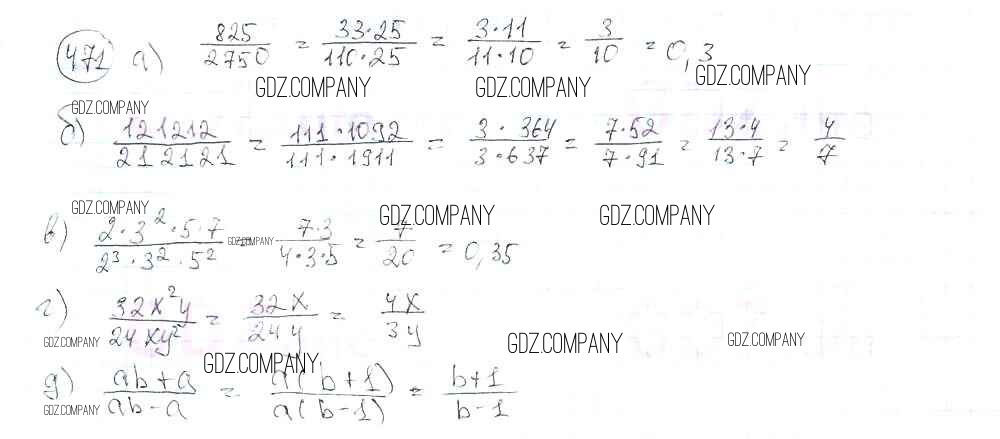 471 а) 825/2750 = 33·25/110·25 = 3·11/11·10 = 3/10 = 0,3
GDZ.COMPANY GDZ.COMPANY GDZ.COMPANY
GDZ.COMPANY
б) 121212/212121 = 111·1092/111·1911 = 3·364/3·637 = 7·52/7·91 = 13·4/13·7 = 4/7
GDZ.COMPANY GDZ.COMPANY GDZ.COMPANY
в) 2·3²·5·7/2³·3²·5² GDZ.COMPANY 7·3/4·3·5 = 7/20 = 0,35
г) 32x²y/24xy² = 32x/24y = 4x/3y
GDZ.COMPANY GDZ.COMPANY GDZ.COMPANY
GDZ.COMPANY
д) ab+a/ab-a = a(b+1)/a(b-1) = b+1/b-1
GDZ.COMPANY